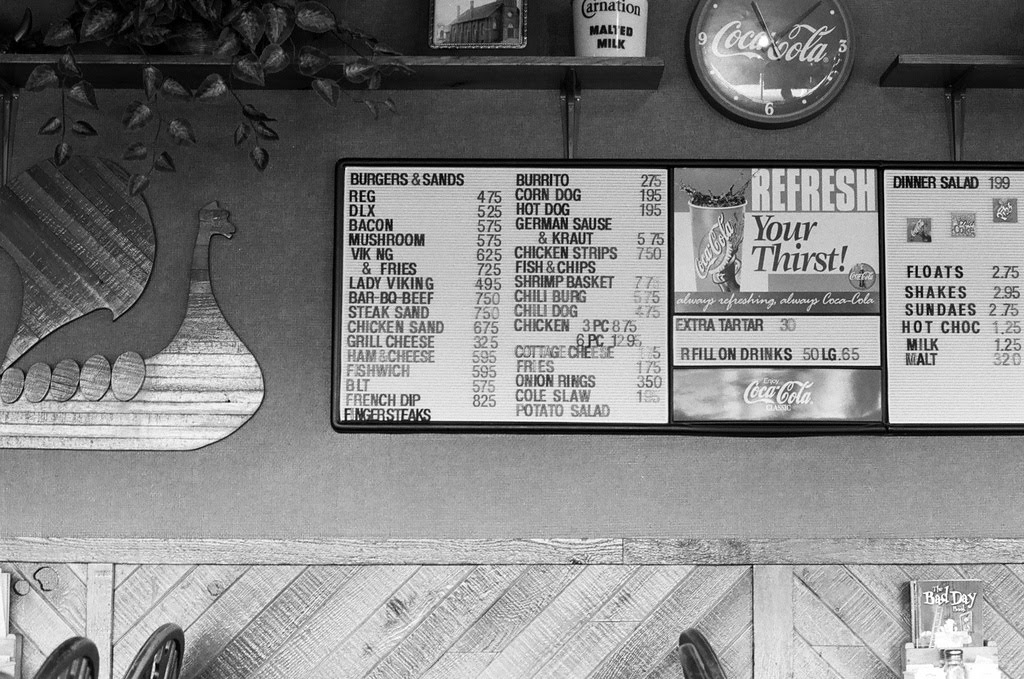 Carnation
MALTED
MILK
Coca-Cola
9
3
6
BURGERS & SANDS
REG 475
DLX 525
BACON 575
MUSHROOM 575
VIK NG 625
& FRIES 725
LADY VIKING 495
BAR-BQ-BEEF 750
STEAK SAND 750
CHICKEN SAND 675
GRILL CHEESE 325
HAM & CHEESE 595
FISHWICH 595
BLT 575
FRENCH DIP 825
FINGERSTEAKS
BURRITO 275
CORN DOG 195
HOT DOG 195
GERMAN SAUSE
& KRAUT 5 75
CHICKEN STRIPS 750
FISH & CHIPS
SHRIMP BASKET
CHILI BURG 575
CHILI DOG 475
CHICKEN 3 PC 8 75
6 PC 12 95
COTTAGE CHEESE
FRIES 175
ONION RINGS 350
COLE SLAW 195
POTATO SALAD
REFRESH
Your
Thirst!
Coca-Cola
always refreshing, always Coca-Cola
EXTRA TARTAR 30
R FILL ON DRINKS 50 LG .65
Enjoy
Coca-Cola
CLASSIC
DINNER SALAD 199
FLOATS 2.75
SHAKES 2.95
SUNDAES 2 75
HOT CHOC 1.25
MILK 1.25
MALT 320
The
Bad Day
Book